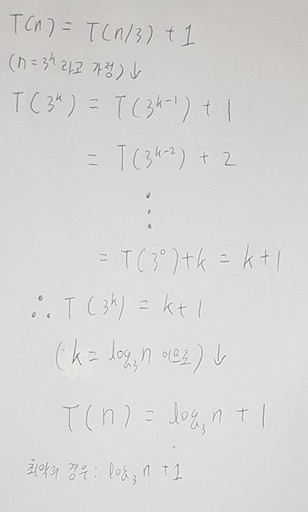 T(n) = T(n/3) + 1
(n=3ᵏ라고 가정)↓
T(3ᵏ) = T(3ᵏ⁻¹) + 1
= T(3ᵏ⁻²) + 2
⋮
= T(3⁰)+k = k+1
∴ T(3ᵏ) = k+1
(k=log₃n 이므로)↓
T(n) = log₃n + 1
최악의 경우: log₃n +1